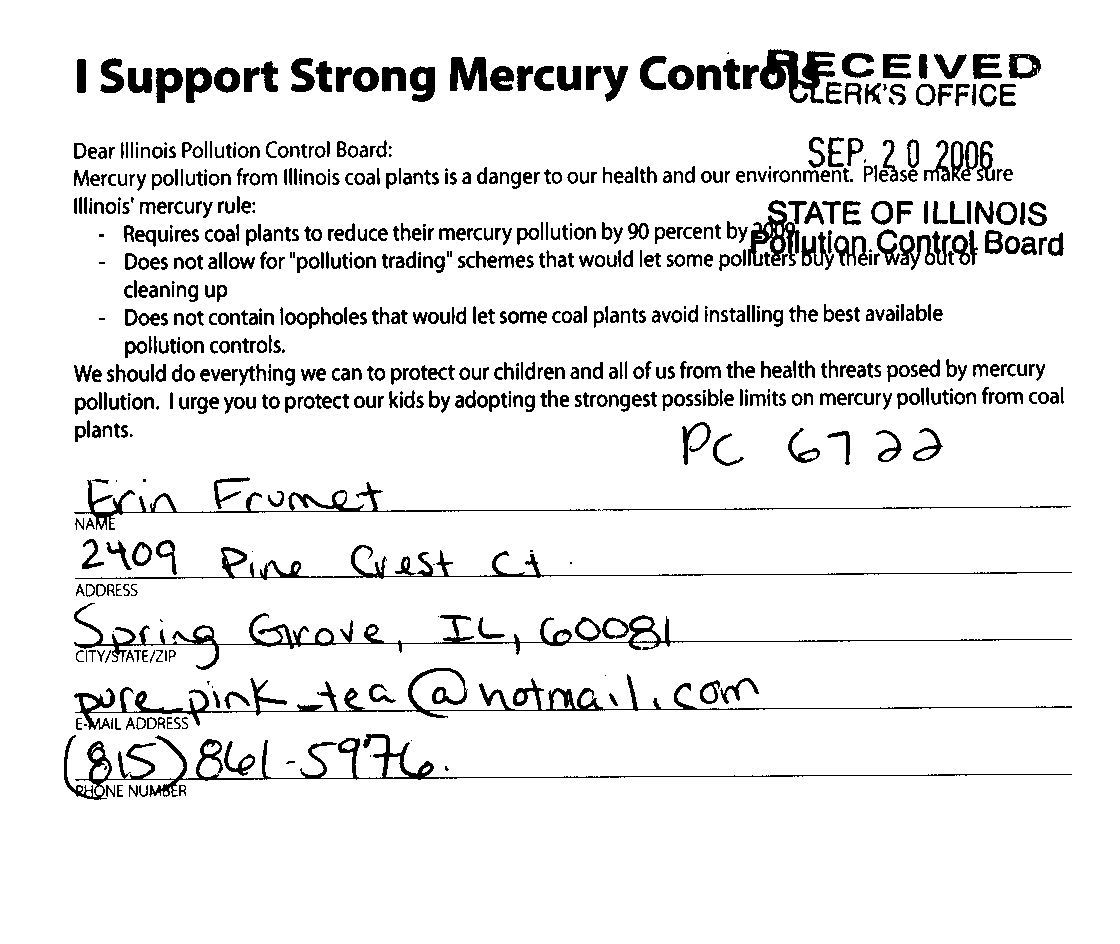 I Support Strong Mercury Controls
RECEIVED
CLERK'S OFFICE
SEP 20 2006
STATE OF ILLINOIS
Pollution Control Board
Dear Illinois Pollution Control Board:
Mercury pollution from Illinois coal plants is a danger to our health and our environment. Please make sure
Illinois' mercury rule:
- Requires coal plants to reduce their mercury pollution by 90 percent by 2009
- Does not allow for "pollution trading" schemes that would let some polluters buy their way out of
cleaning up
- Does not contain loopholes that would let some coal plants avoid installing the best available
pollution controls.
We should do everything we can to protect our children and all of us from the health threats posed by mercury
pollution. I urge you to protect our kids by adopting the strongest possible limits on mercury pollution from coal
plants.
PC 6722
Erin Frumet
NAME
2409 Pine Crest Ct
ADDRESS
Spring Grove, IL, 60081
CITY/STATE/ZIP
pure_pink_tea@hotmail.com
E-MAIL ADDRESS
(815)861-5976.
PHONE NUMBER